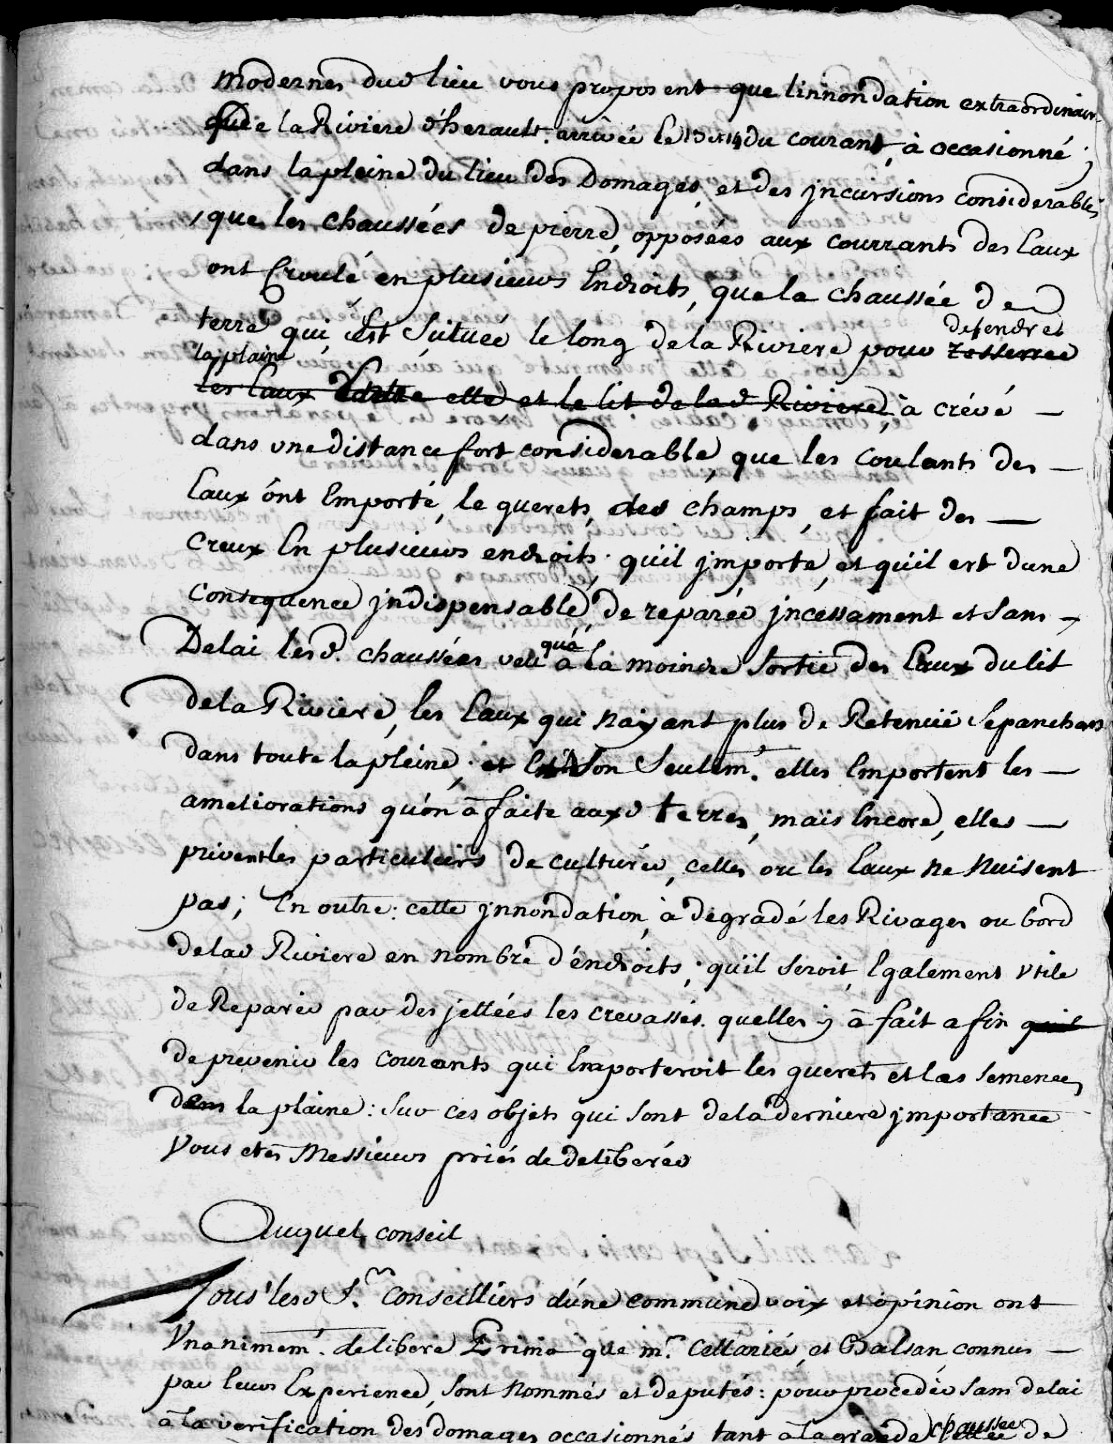 modernes dud lieu vous proposent que linnondation extraordinair.
de la Riviere d'herault. arrivée le 13 et 14 du courant, à occasionné
dans la pleine du lieu des Domages, et des jncursions considerables
que les chaussées de pierre, opposées aux courrants des Eaux
ont Croulé en plusieurs Endroits, que la chaussée de
terre qui est Situéé le long de la Riviere pour defendre et resserrée
la plaine
les Eaux entre elle et le lit de lad Riviere, à crévé —
dans une distance fort considerable, que les coulants des —
Eaux ônt Emporté, le querets, des champs, et fait des —
Creux En plusieurs endroits; quil jmporte, et quil est dune
Consequence jndispensable, de reparér jncessament et sans
Delai lesd. chaussées veu qu'à la moindre Sortie des Eaux du lit
de la Riviere, les Eaux qui nayant plus de Retenüe Sepanchent
dans toute la pleine, et non Seulem.t elles Emportent les —
ameliorations qu'on à faite auxd terres, mais Encore, elles —
privent les particuliers de culturér, celles ou les Eaux ne Nuisent
pas; En outre: cette jnnondation, à dégradé les Rivages ou bord
de lad Riviere en nombre d'éndroits; quil seroit Egalement Vtile
de Reparér par des jettéés les crevasses. quelles y à fait afin quil
de prevenir les courants qui Emporteroit les querets et les semences
dans la plaine: Sur ces objets qui sont de la derniere jmportance
Vous etes Messieurs priés de deliberér
Auquel conseil
Tous lesd S.rs Conseilliers d'une commune voix et opinion ont
Vnanimem.t deliberé Primo que m.rs Cellariér, et Balsan connus —
par leur Experience, sont Nommés et deputés: pour procedér sans delai
à la verification des domages occasionnés tant à la grande chaussée de